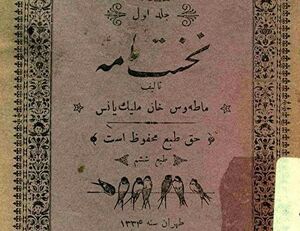 جلد اول
نخست نامه
تألیف
ماطه‌وس خان ملیک‌یانس
حق طبع محفوظ است
طبع ششم
طهران سنه ۱۳۳۴